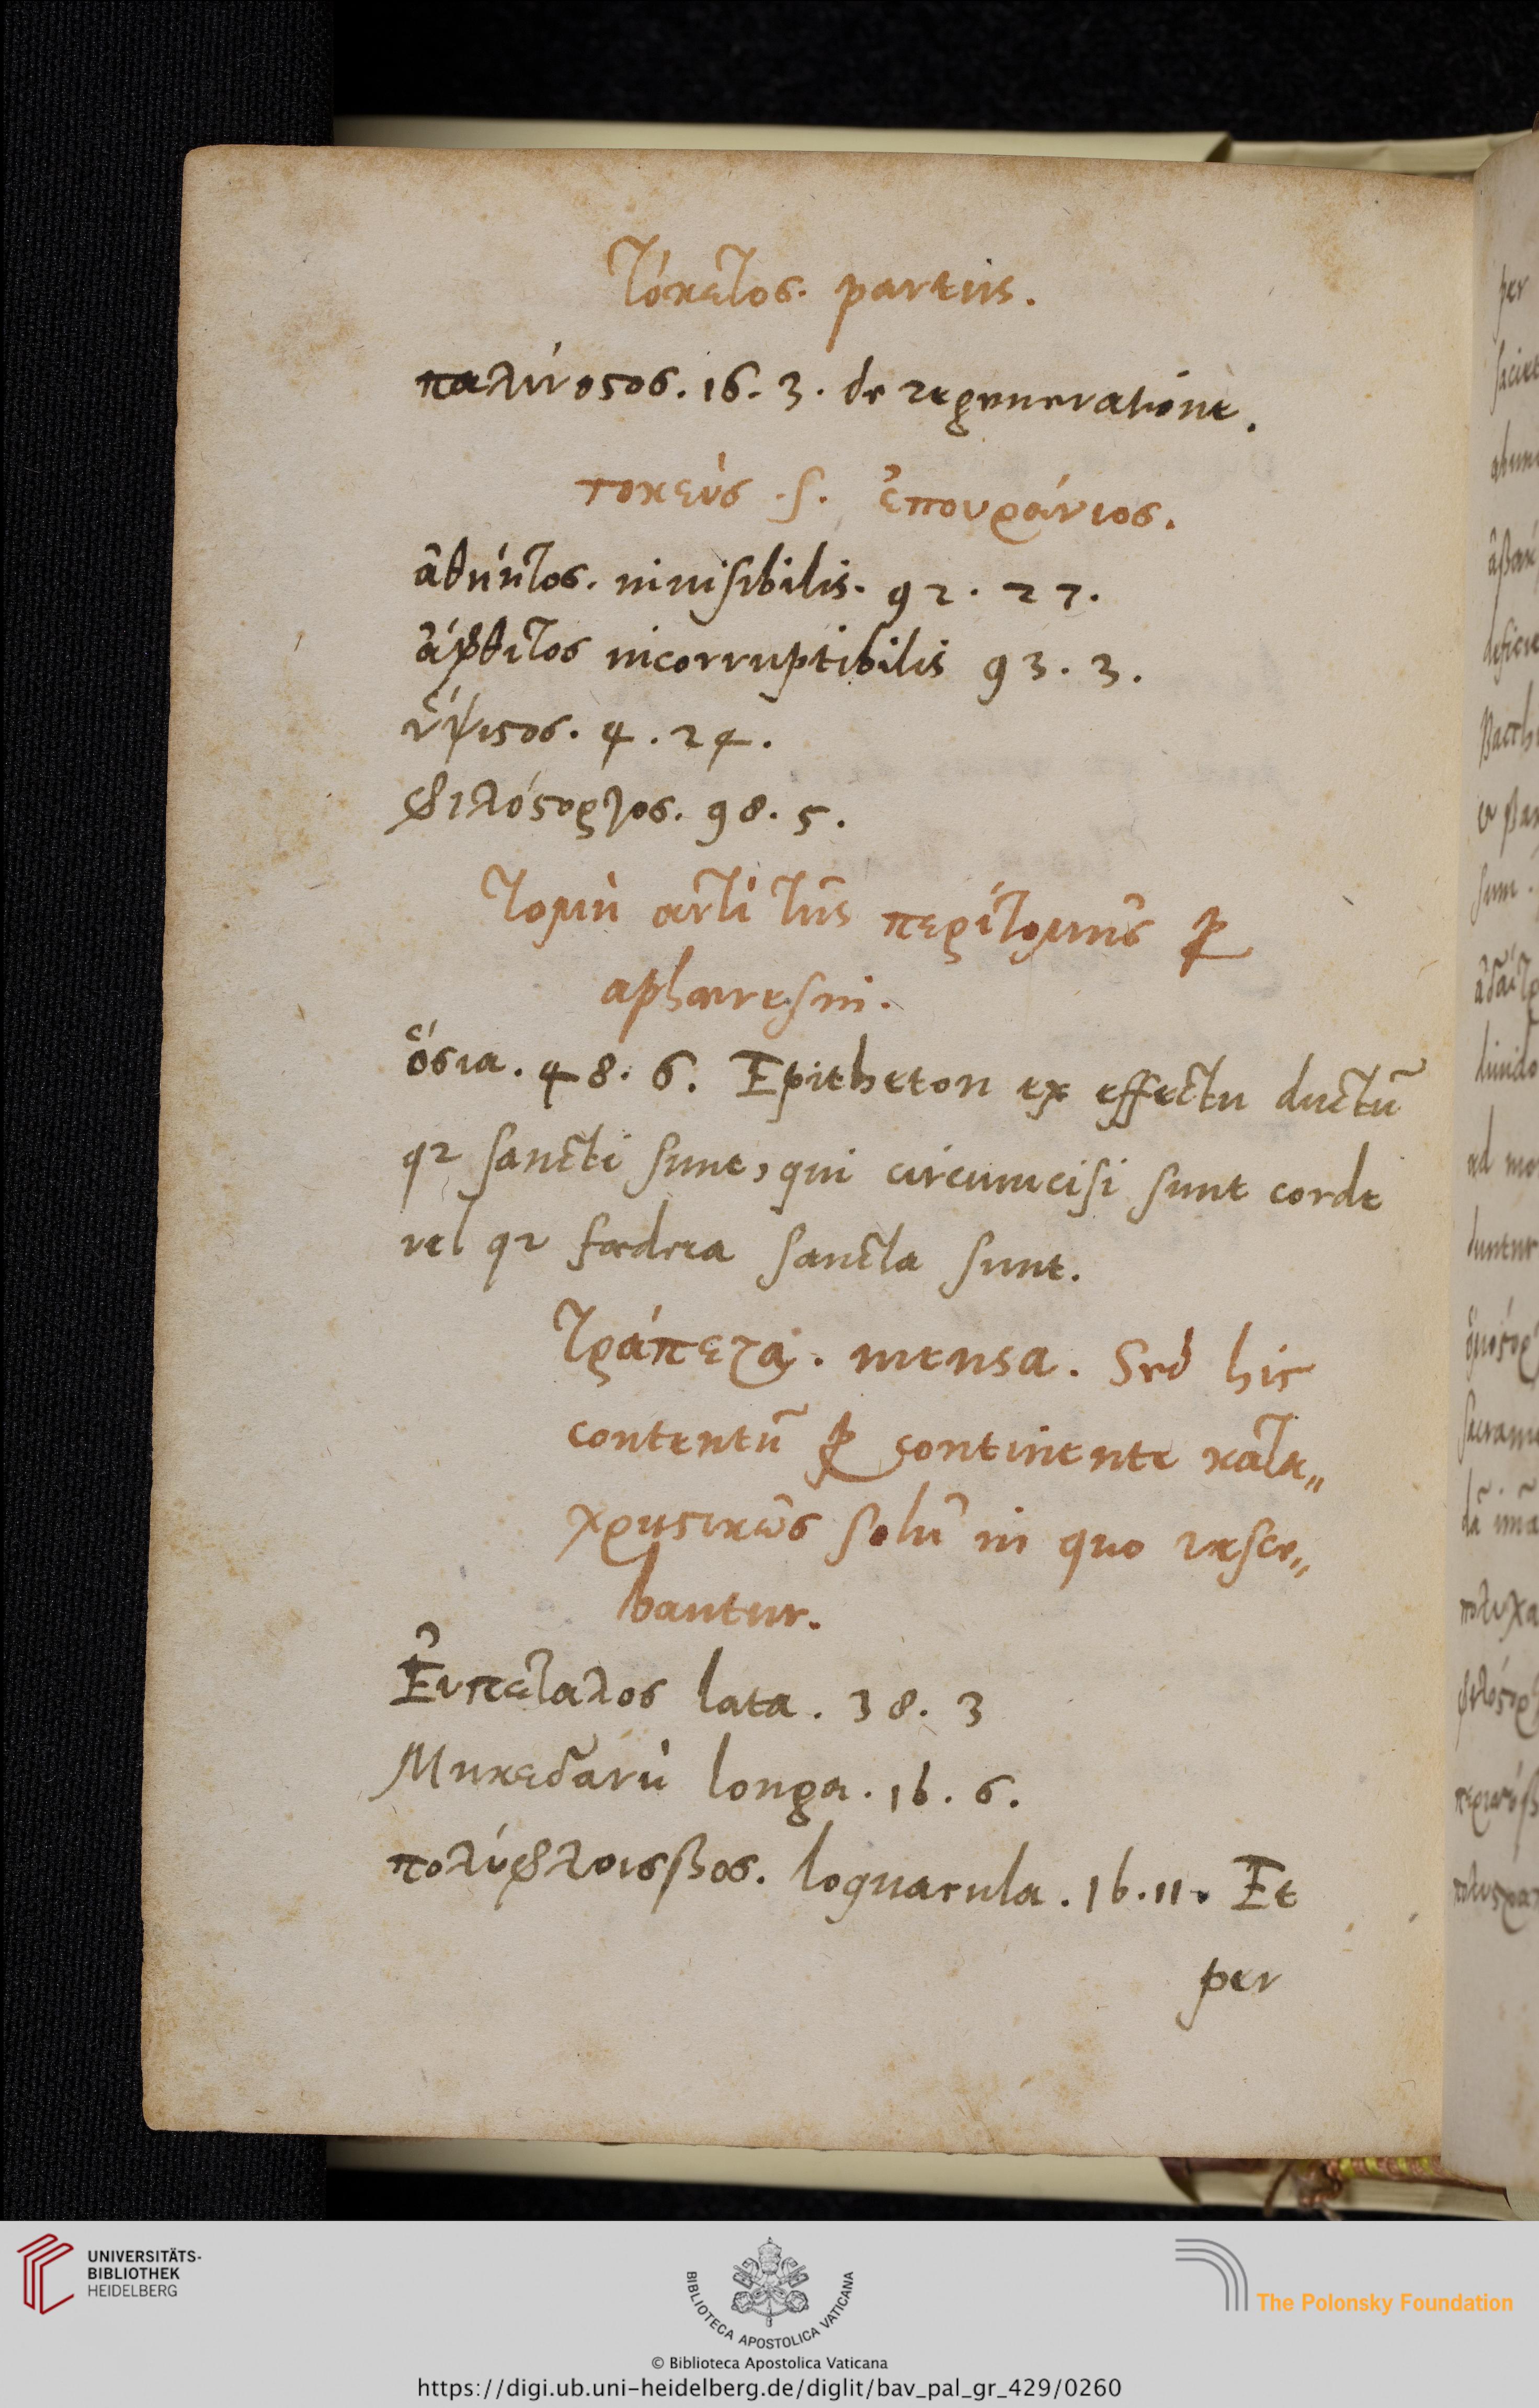 τόκετος. partus.
παλίνοϛος. 16. 3. de regeneratione.
τοκεὺς .s. ἐπουράνιος.
ἀθήητος. invisibilis. 92. 27.
ἄφθιτος incorruptibilis 93. 3.
ὕψιϛος. 4. 24.
φιλόϛοργος. 98. 5.
τομὴ ἀντὶ τῆς περίτομης ꝓ
aphæresin.
ὅσια. 48. 6. Epitheton ex effectu ductū
qr sancti sunt, qui circumcisi sunt corde
vel qr fœdera sancta sunt.
τράπεζα. mensa. Sed hic
contentū ꝓ continente κατα„
χρηϛικῶς solū in quo vesce„
bantur.
Ἐυπεταλος lata. 38. 3
Μηκεδανὴ longa. 16. 6.
πολύφλοισβος. loquacula. 16. 11. Et
per
UNIVERSITÄTS-
BIBLIOTHEK
HEIDELBERG
BIBLIOTECA APOSTOLICA VATICANA
The Polonsky Foundation
© Biblioteca Apostolica Vaticana
https://digi.ub.uni-heidelberg.de/diglit/bav_pal_gr_429/0260